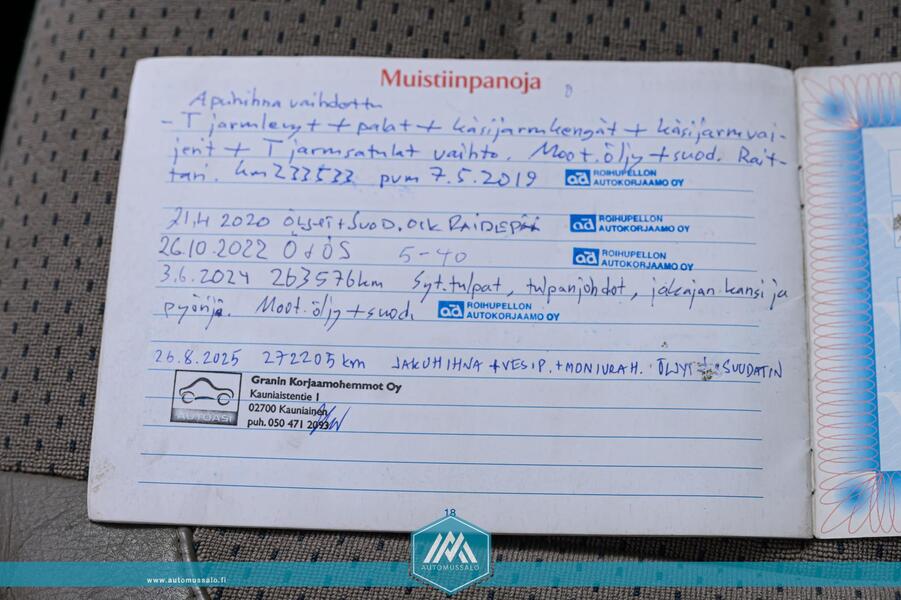 Muistiinpanoja
Apuhihna vaihdottu
- T jarrulevyt + palat + käsijarrukengät + käsijarruvai-
jerit + T jarrusatulat vaihto. Moot.öljy + suod. Rait-
tari. km 233533 pvm 7.5.2019 ad ROIHUPELLON AUTOKORJAAMO OY
21.4 2020 + SUOD. ad ROIHUPELLON AUTOKORJAAMO OY
26.10.2022 Ö+ÖS 5-40 ad ROIHUPELLON AUTOKORJAAMO OY
3.6.2024 263576km Syt.tulpat, tulpanjohdot, jakajan kansi ja
pyörijä. Moot.öljy + suod. ad ROIHUPELLON AUTOKORJAAMO OY
26.8.2025 272205 km JAKOHIHNA + VESIP. + MONIURAH. ÖLJYT + SUODATIN
Granin Korjaamohemmot Oy
Kauniaistentie 1
AUTOASI 02700 Kauniainen
puh. 050 471 2093
18
AUTOMUSSALO
www.automussalo.fi